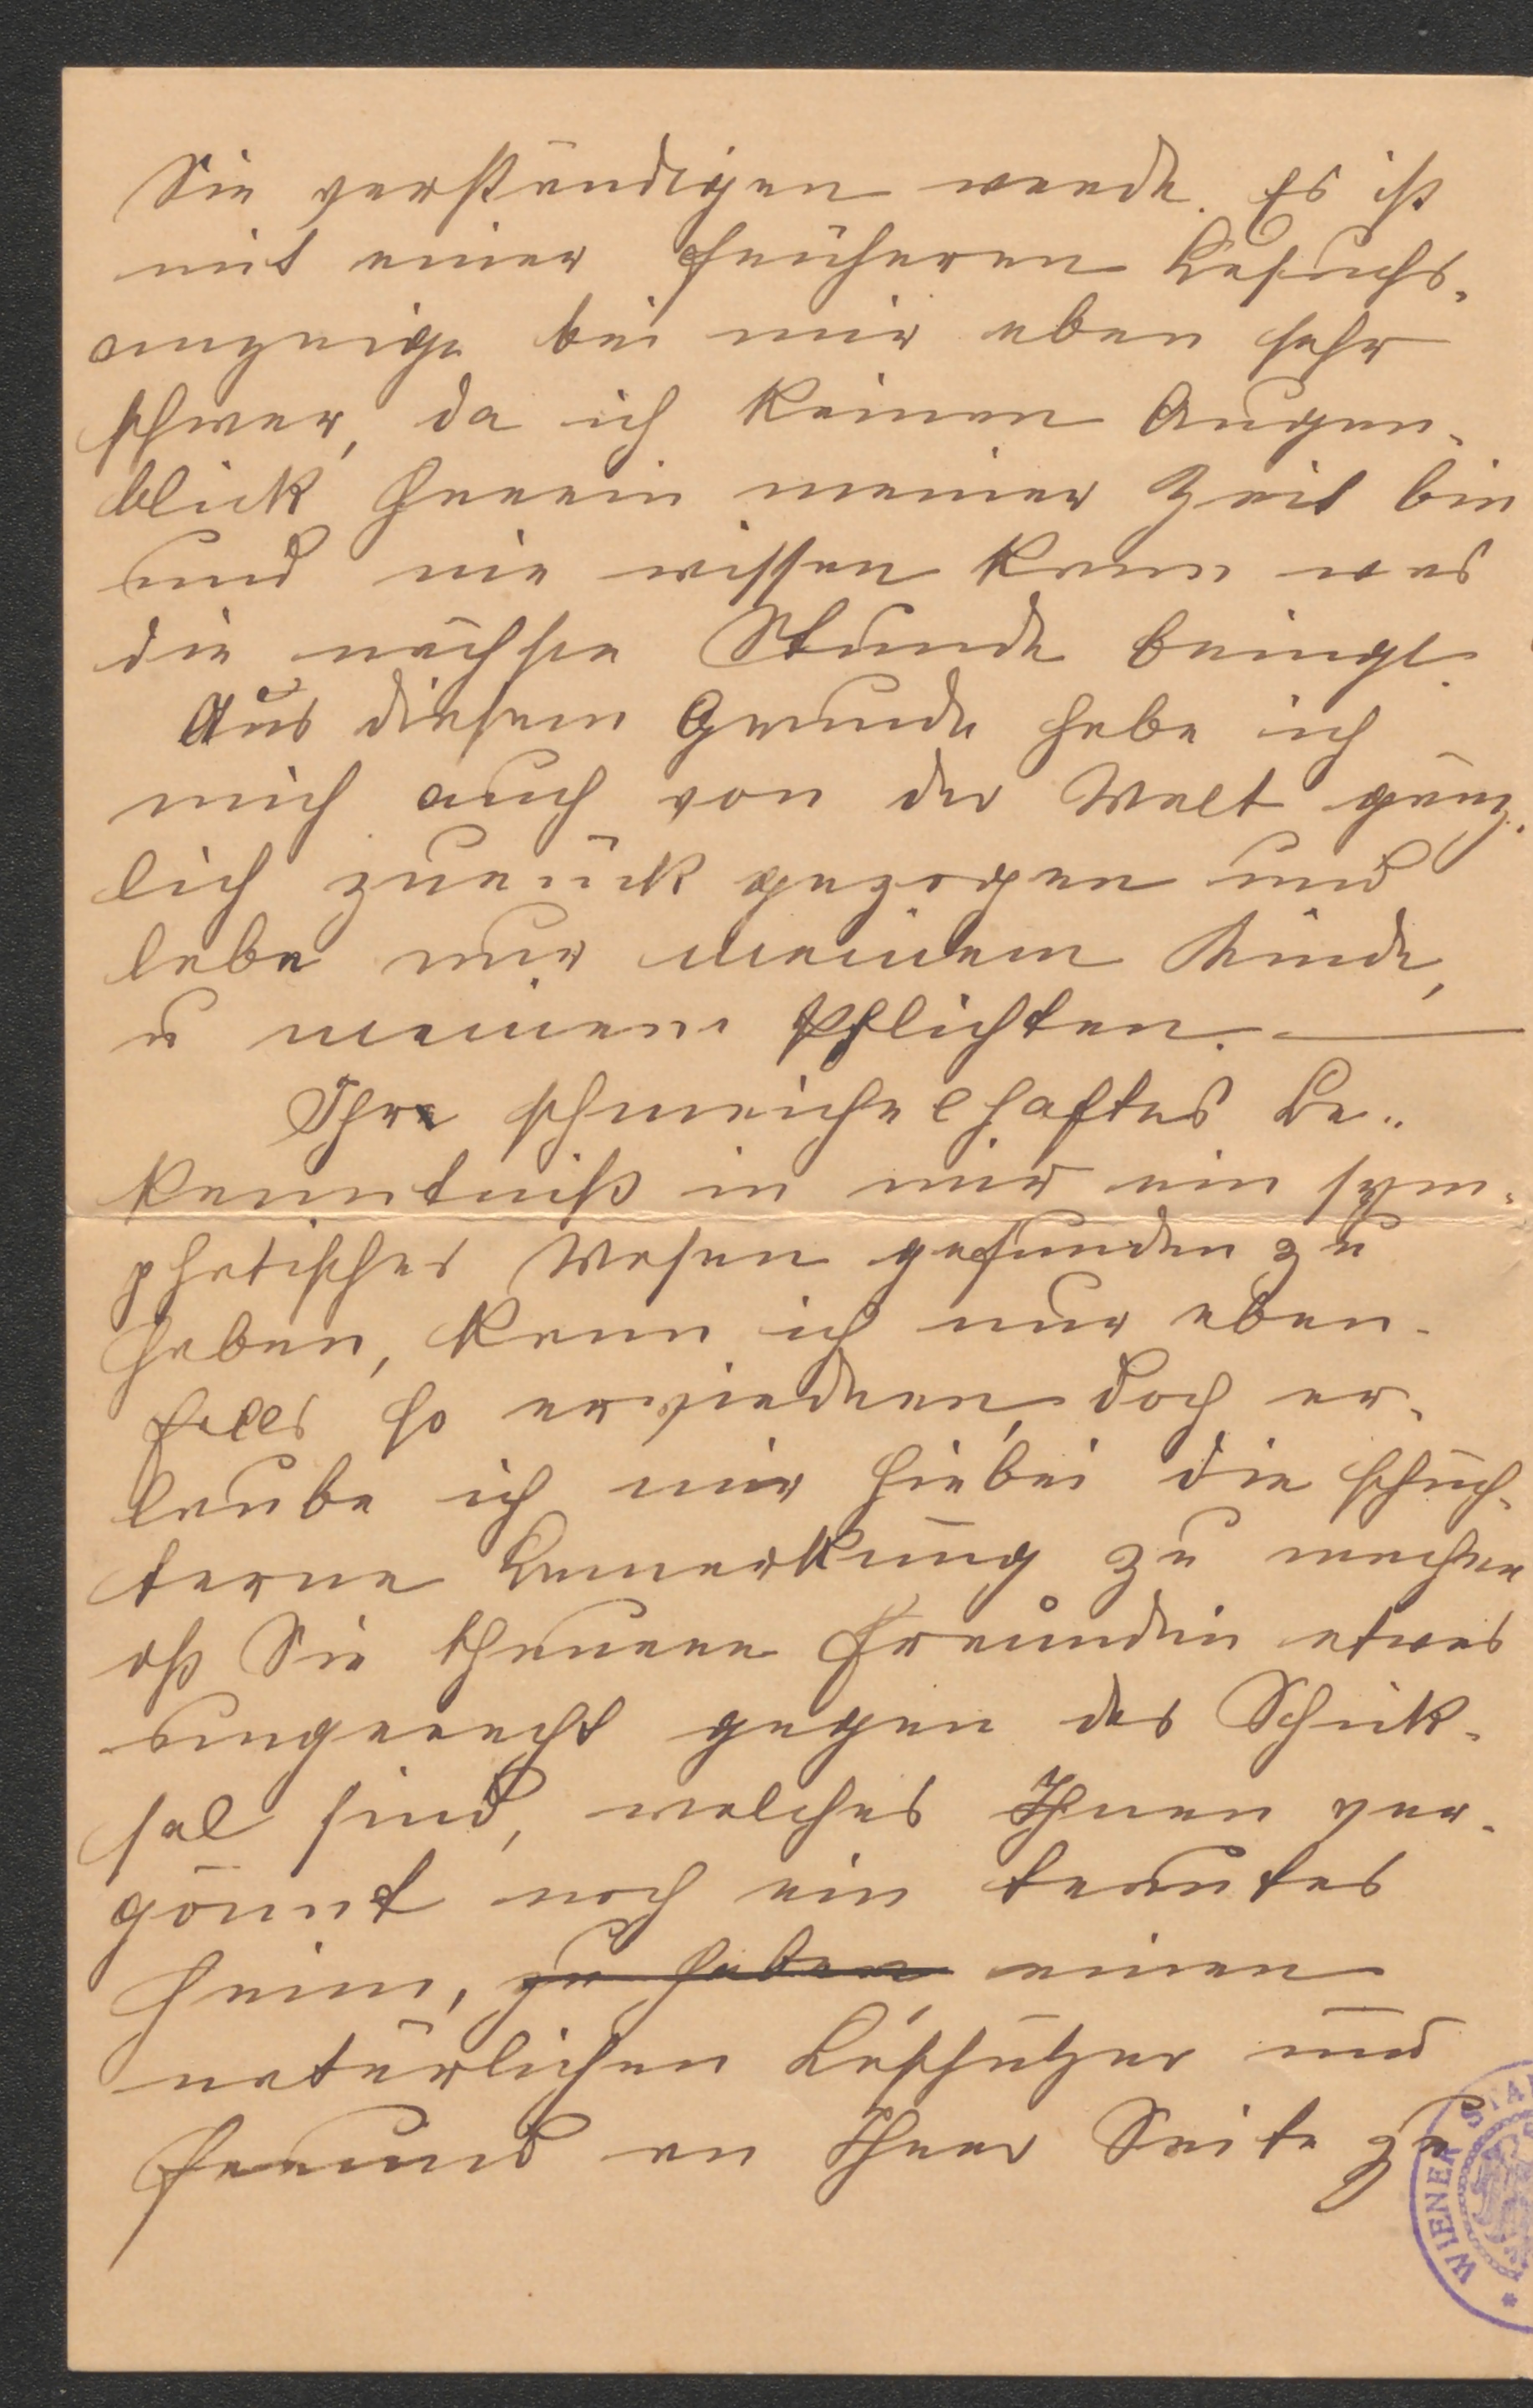 Sie verständigen werde. Es ist
mit einer früheren Besuchs-
anzeige bei mir eben sehr
schwer, da ich keinen Augen-
blick Herrin meiner Zeit bin
und nie wissen kann was
die nächste Stunde bringt.
Aus diesem Grunde habe ich
mich auch von der Welt gänz-
lich zurück gezogen und
lebe nur meinem Kinde,
u meinen Pflichten. —
Ihr schmeichelhaftes Be-
kenntniß in mir ein sym-
phatisches Wesen gefunden zu
haben, kann ich nur eben-
falls so erwiedern, doch er-
laube ich mir hiebei die schüch-
terne Bemerkung zu machen
oß Sie theuere Freundin etwas
ungerecht gegen das Schick-
sal sind, welches Ihnen ver-
gönnt noch ein trautes
Heim, zu haben einen
natürlichen Beschützer und
Freund an Ihrer Seite zu
WIENER STA